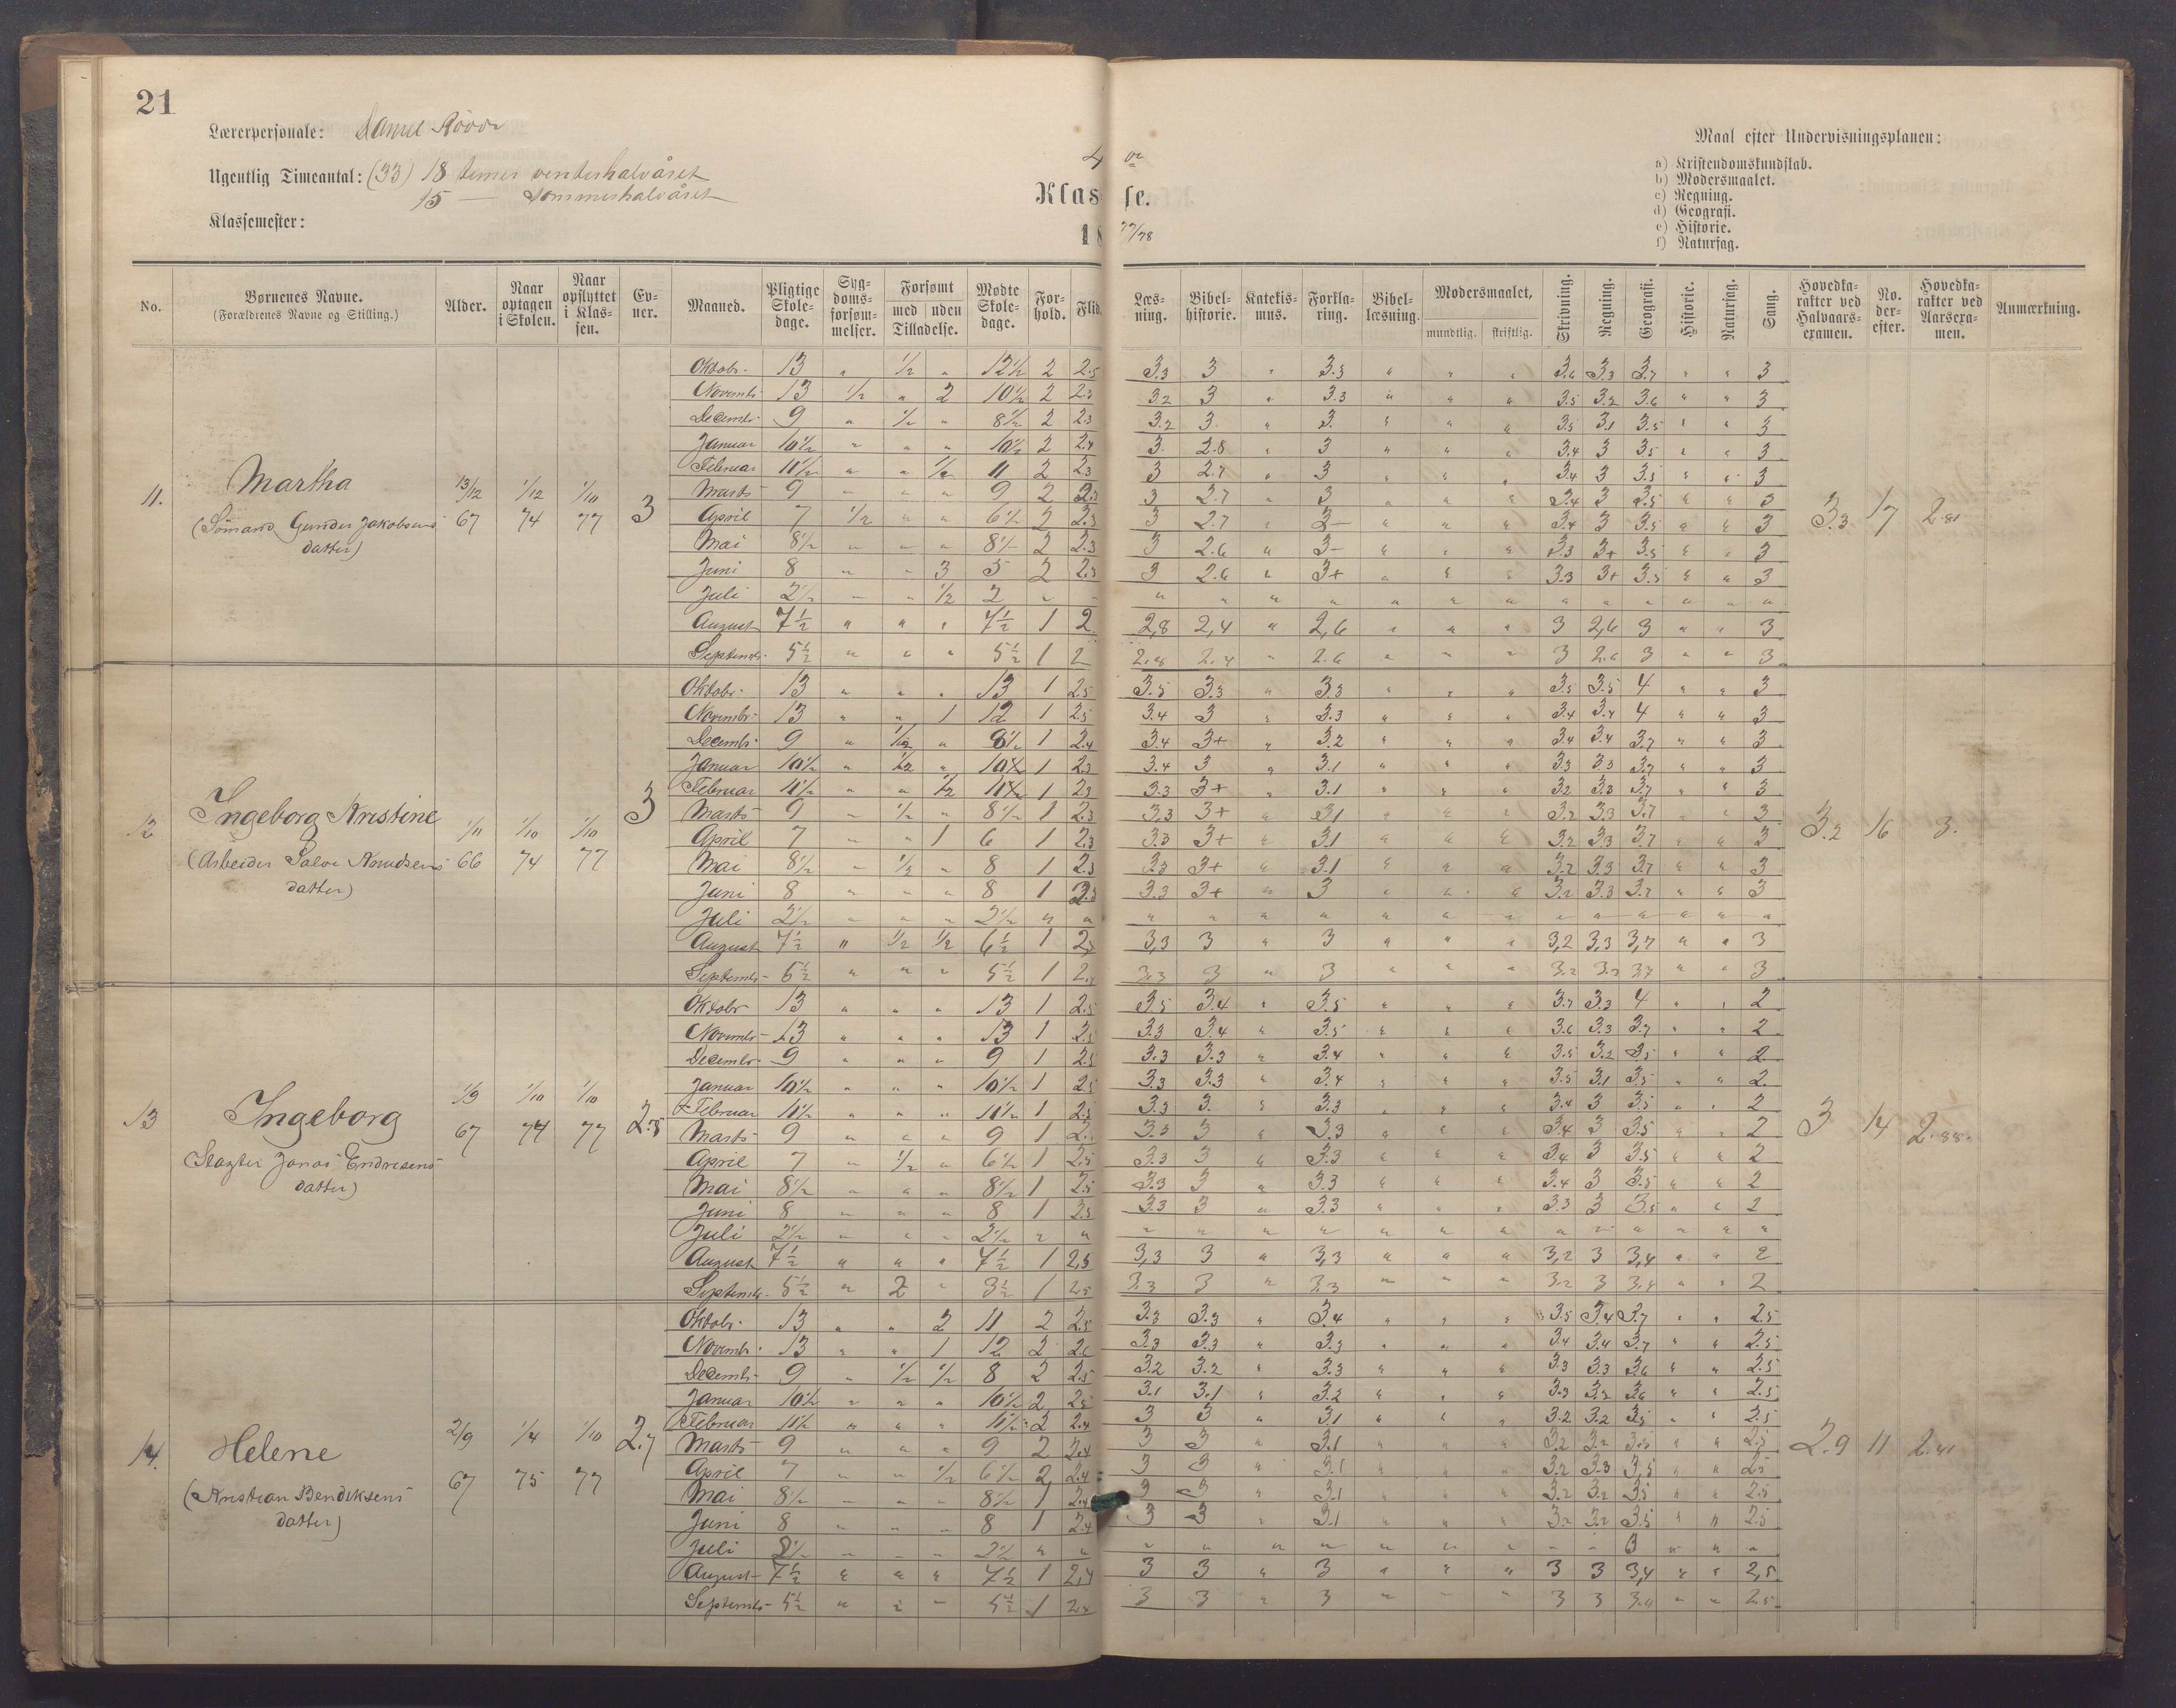 21
Lærerpersonale: Daniel
Ugentlig Timeantal: (33) 18 timer vinterhalvåret
15 — Sommerhalvåret
Klassemester:
4 de
Klasse.
18 77/78
Maal efter Undervisningsplanen:
a) Kristendomskundskab.
b) Modersmaalet.
c) Regning.
d) Geografi.
e) Historie.
f) Naturfag.
No. Børnenes Navne. (Forældrenes Navne og Stilling.) Alder. Naar optagen i Skolen. Naar opflyttet i Klassen. Evner. Maaned. Pligtige Skoledage. Sygdomsforsømmelser. Forsømt med uden Tilladelse. Mødte Skoledage. Forhold. Flid. Læsning. Bibelhistorie. Katekismus. Forklaring. Bibellæsning. Modersmaalet, mundtlig. skriftlig. Skrivning. Regning. Geografi. Historie. Naturfag. Sang. Hovedkarakter ved Halvaarsexamen. No. derefter. Hovedkarakter ved Aarsexamen. Anmærkning.
11. Martha 13/12 67 1/12 74 1/10 77 3 3.3 17 2.81
(Sømand Gunder Jakobsens datter)
Oktobr. 13 " 1/2 " 12 1/2 2 2.5 3.3 3 " 3.3 " " " 3.6 3.3 3.7 " " 3
Novembr. 13 1/2 " 2 10 1/2 2 2.3 3.2 3 " 3.3 " " " 3.5 3.2 3.6 " " 3
Decembr. 9 " 1/2 " 8 1/2 2 2.3 3.2 3 " 3. " " " 3.5 3.1 3.5 " " 3
Januar 10 1/2 " " " 10 1/2 2 2.4 3 2.8 " 3 " " " 3.4 3 3.5 " " 3
Februar 11 1/2 " " 1/2 11 2 2.3 3 2.7 " 3 " " " 3.4 3 3.5 " " 3
Marts 9 " " " 9 2 2.3 3 2.7 " 3 " " " 3.4 3 3.5 " " 3
April 7 1/2 " " 6 1/2 2 2.3 3 2.7 " 3- " " " 3.4 3 3.5 " " 3
Mai 8 1/2 " " " 8 1/2 2 2.3 3 2.6 " 3- " " " 3.3 3+ 3.5 " " 3
Juni 8 " " 3 5 2 2.3 3 2.6 " 3+ " " " 3.3 3+ 3.5 " " 3
Juli 2 1/2 " " 1/2 2 " " " " " " " " " " " " " " "
August 7 1/2 " " " 7 1/2 1 2 2,8 2,4 " 2,6 " " " 3 2,6 3 " " 3
Septembr. 5 1/2 " " " 5 1/2 1 2 2.8 2.4 " 2.6 " " " 3 2.6 3 " " 3
12 Ingeborg Kristine 1/11 66 1/10 74 1/10 77 3 3.2 16 3.
(Arbeider Salve Knudsens datter)
Oktobr. 13 " " " 13 1 2.5 3.5 3.3 " 3.3 " " " 3.5 3.5 4 " " 3
Novembr. 13 " " 1 12 1 2.5 3.4 3 " 3.3 " " " 3.4 3.4 4 " " 3
Decembr. 9 " 1/2 " 8 1/2 1 2.4 3.4 3+ " 3.2 " " " 3.4 3.4 3.7 " " 3
Januar 10 1/2 " 1/2 " 10 1 2.3 3.4 3 " 3.1 " " " 3.3 3.3 3.7 " " 3
Februar 11 1/2 " " 1/2 11 1 2.3 3.3 3+ " 3.1 " " " 3.2 3.3 3.7 " " 3
Marts 9 " 1/2 " 8 1/2 1 2.3 3.3 3+ " 3.1 " " " 3.2 3.3 3.7 " " 3
April 7 " " 1 6 1 2.3 3.3 3+ " 3.1 " " " 3.2 3.3 3.7 " " 3
Mai 8 1/2 " 1/2 " 8 1 2.3 3.3 3+ " 3.1 " " " 3.2 3.3 3.7 " " 3
Juni 8 " " " 8 1 2.3 3.3 3+ " 3 " " " 3.2 3.3 3.7 " " 3
Juli 2 1/2 " " " 2 1/2 " " " " " " " " " " " " " " "
August 7 1/2 " 1/2 1/2 6 1/2 1 3,3 3 " 3 " " " 3,2 3,3 3,7 " " 3
Septembr. 5 1/2 " " " 5 1/2 1 3.3 3 " 3 " " " 3.2 3.3 3.7 " " 3
13 Ingeborg 1/9 67 1/10 74 1/10 77 2.8 3 14 2.88.
(Slagter Jonas Endresens datter)
Oktobr 13 " " " 13 1 2.5 3.5 3.4 " 3.5 " " " 3.7 3.3 4 " " 2
Novembr. 13 " " " 13 1 2.5 3.3 3.4 " 3.5 " " " 3.6 3.3 3.7 " " 2
Decembr. 9 " " " 9 1 2.5 3.3 3.3 " 3.4 " " " 3.5 3.2 3.5 " " 2
Januar 10 1/2 " " " 10 1/2 1 2.5 3.3 3.3 " 3.4 " " " 3.5 3.1 3.5 " " 2
Februar 11 1/2 " " " 11 1/2 1 2.5 3.3 3. " 3.3 " " " 3.4 3 3.5 " " 2
Marts 9 " " " 9 1 3.3 3 " 3.3 " " " 3.4 3 3.5 " " 2
April 7 " 1/2 " 6 1/2 1 2.5 3.3 3 " 3.3 " " " 3.4 3 3.5 " " 2
Mai 8 1/2 " " " 8 1/2 1 2.5 3.3 3 " 3.3 " " " 3.4 3 3.5 " " 2
Juni 8 " " " 8 1 2.5 3.3 3 " 3.3 " " " 3.3 3 3.5 " " 2
Juli 2 1/2 " " " 2 1/2 " " " " " " " " " " " " " " "
August 7 1/2 " " " 7 1/2 1 2,5 3,3 3 " 3,3 " " " 3,2 3 3,4 " " 2
Septembr. 5 1/2 " 2 " 3 1/2 1 2.5 3.3 3 " 3.3 " " " 3.2 3 3.4 " " 2
14. Helene 2/9 67 1/4 75 1/10 77 2.7 2.9 11 2.41
(Kristian Bendiksens datter)
Oktobr. 13 " " 2 11 2 2.5 3.3 3.3 " 3.4 " " " 3.5 3.4 3.7 " " 2.5
Novembr. 13 " " 1 12 2 2.6 3.3 3.3 " 3.3 " " " 3.4 3.4 3.7 " " 2.5
Decembr. 9 " 1/2 1/2 8 2 2.5 3.2 3.2 " 3.3 " " " 3.3 3.3 3.6 " " 2.5
Januar 10 1/2 " " " 10 1/2 2 2.5 3.1 3.1 " 3.2 " " " 3.3 3.2 3.6 " " 2.5
Februar 11 1/2 " " " 11 1/2 2 2.4 3 3 " 3.1 " " " 3.2 3.2 3.5 " " 2.5
Marts 9 " " " 9 2 2.4 3 3 " 3.1 " " " 3.2 3.2 3.5 " " 2.5
April 7 " " 1/2 6 1/2 2 2.4 3 3 " 3.1 " " " 3.2 3.3 3.5 " " 2.5
Mai 8 1/2 " " " 8 1/2 1 2.4 3 3 " 3.1 " " " 3.2 3.2 3.5 " " 2.5
Juni 8 " " " 8 1 2.4 3 3 " 3.1 " " " 3.2 3.2 3.5 " " 2.5
Juli 2 1/2 " " " 2 1/2 " " " " " " " " " " " " " "
August 7 1/2 " " " 7 1/2 1 2,4 3 3 " 3 " " " 3 3 3,4 " " 2,5
Septembr. 5 1/2 " " " 5 1/2 1 2.4 3 3 " 3 " " " 3 3 3.4 " " 2.5